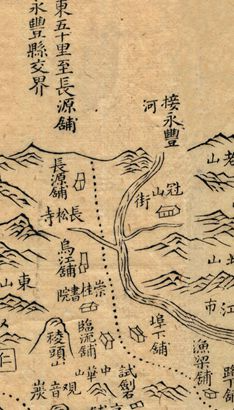 東五十里至長源舖
永豐縣交界
接永豐
河
老山
冠山
街
長源舖
長松寺
烏江舖
崇桂書院
東山
臨流舖
稜頭山
上山
江市
埠下舖
漁梁舖
試劍石
中華山
觀音炭